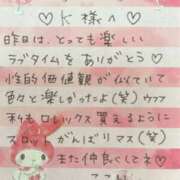 ♡K様へ♡
昨日は、とっても楽しい
ラブタイムをありがとう♡
性的価値観が似ていて
色々と楽しかったよ(笑)ウフフ
私もロレックス買えるように
スロットがんばりマス(笑)
また仲良くしてネ♡